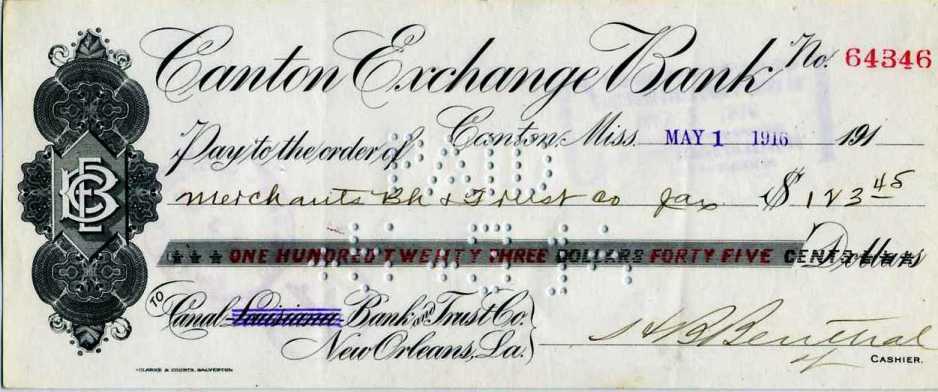 Canton Exchange Bank No. 64346
Canton, Miss. MAY 1 1916 191
Pay to the order of
PAID
Merchants Bk & Trust Co Jax $ 123 45
★ ★ ★ ONE HUNDRED TWENTY THREE DOLLARS FORTY FIVE CENTS Dollars
TO Canal-Louisiana Bank and Trust Co.
New Orleans, La.
CASHIER.
CLARKE & COURTS, GALVESTON